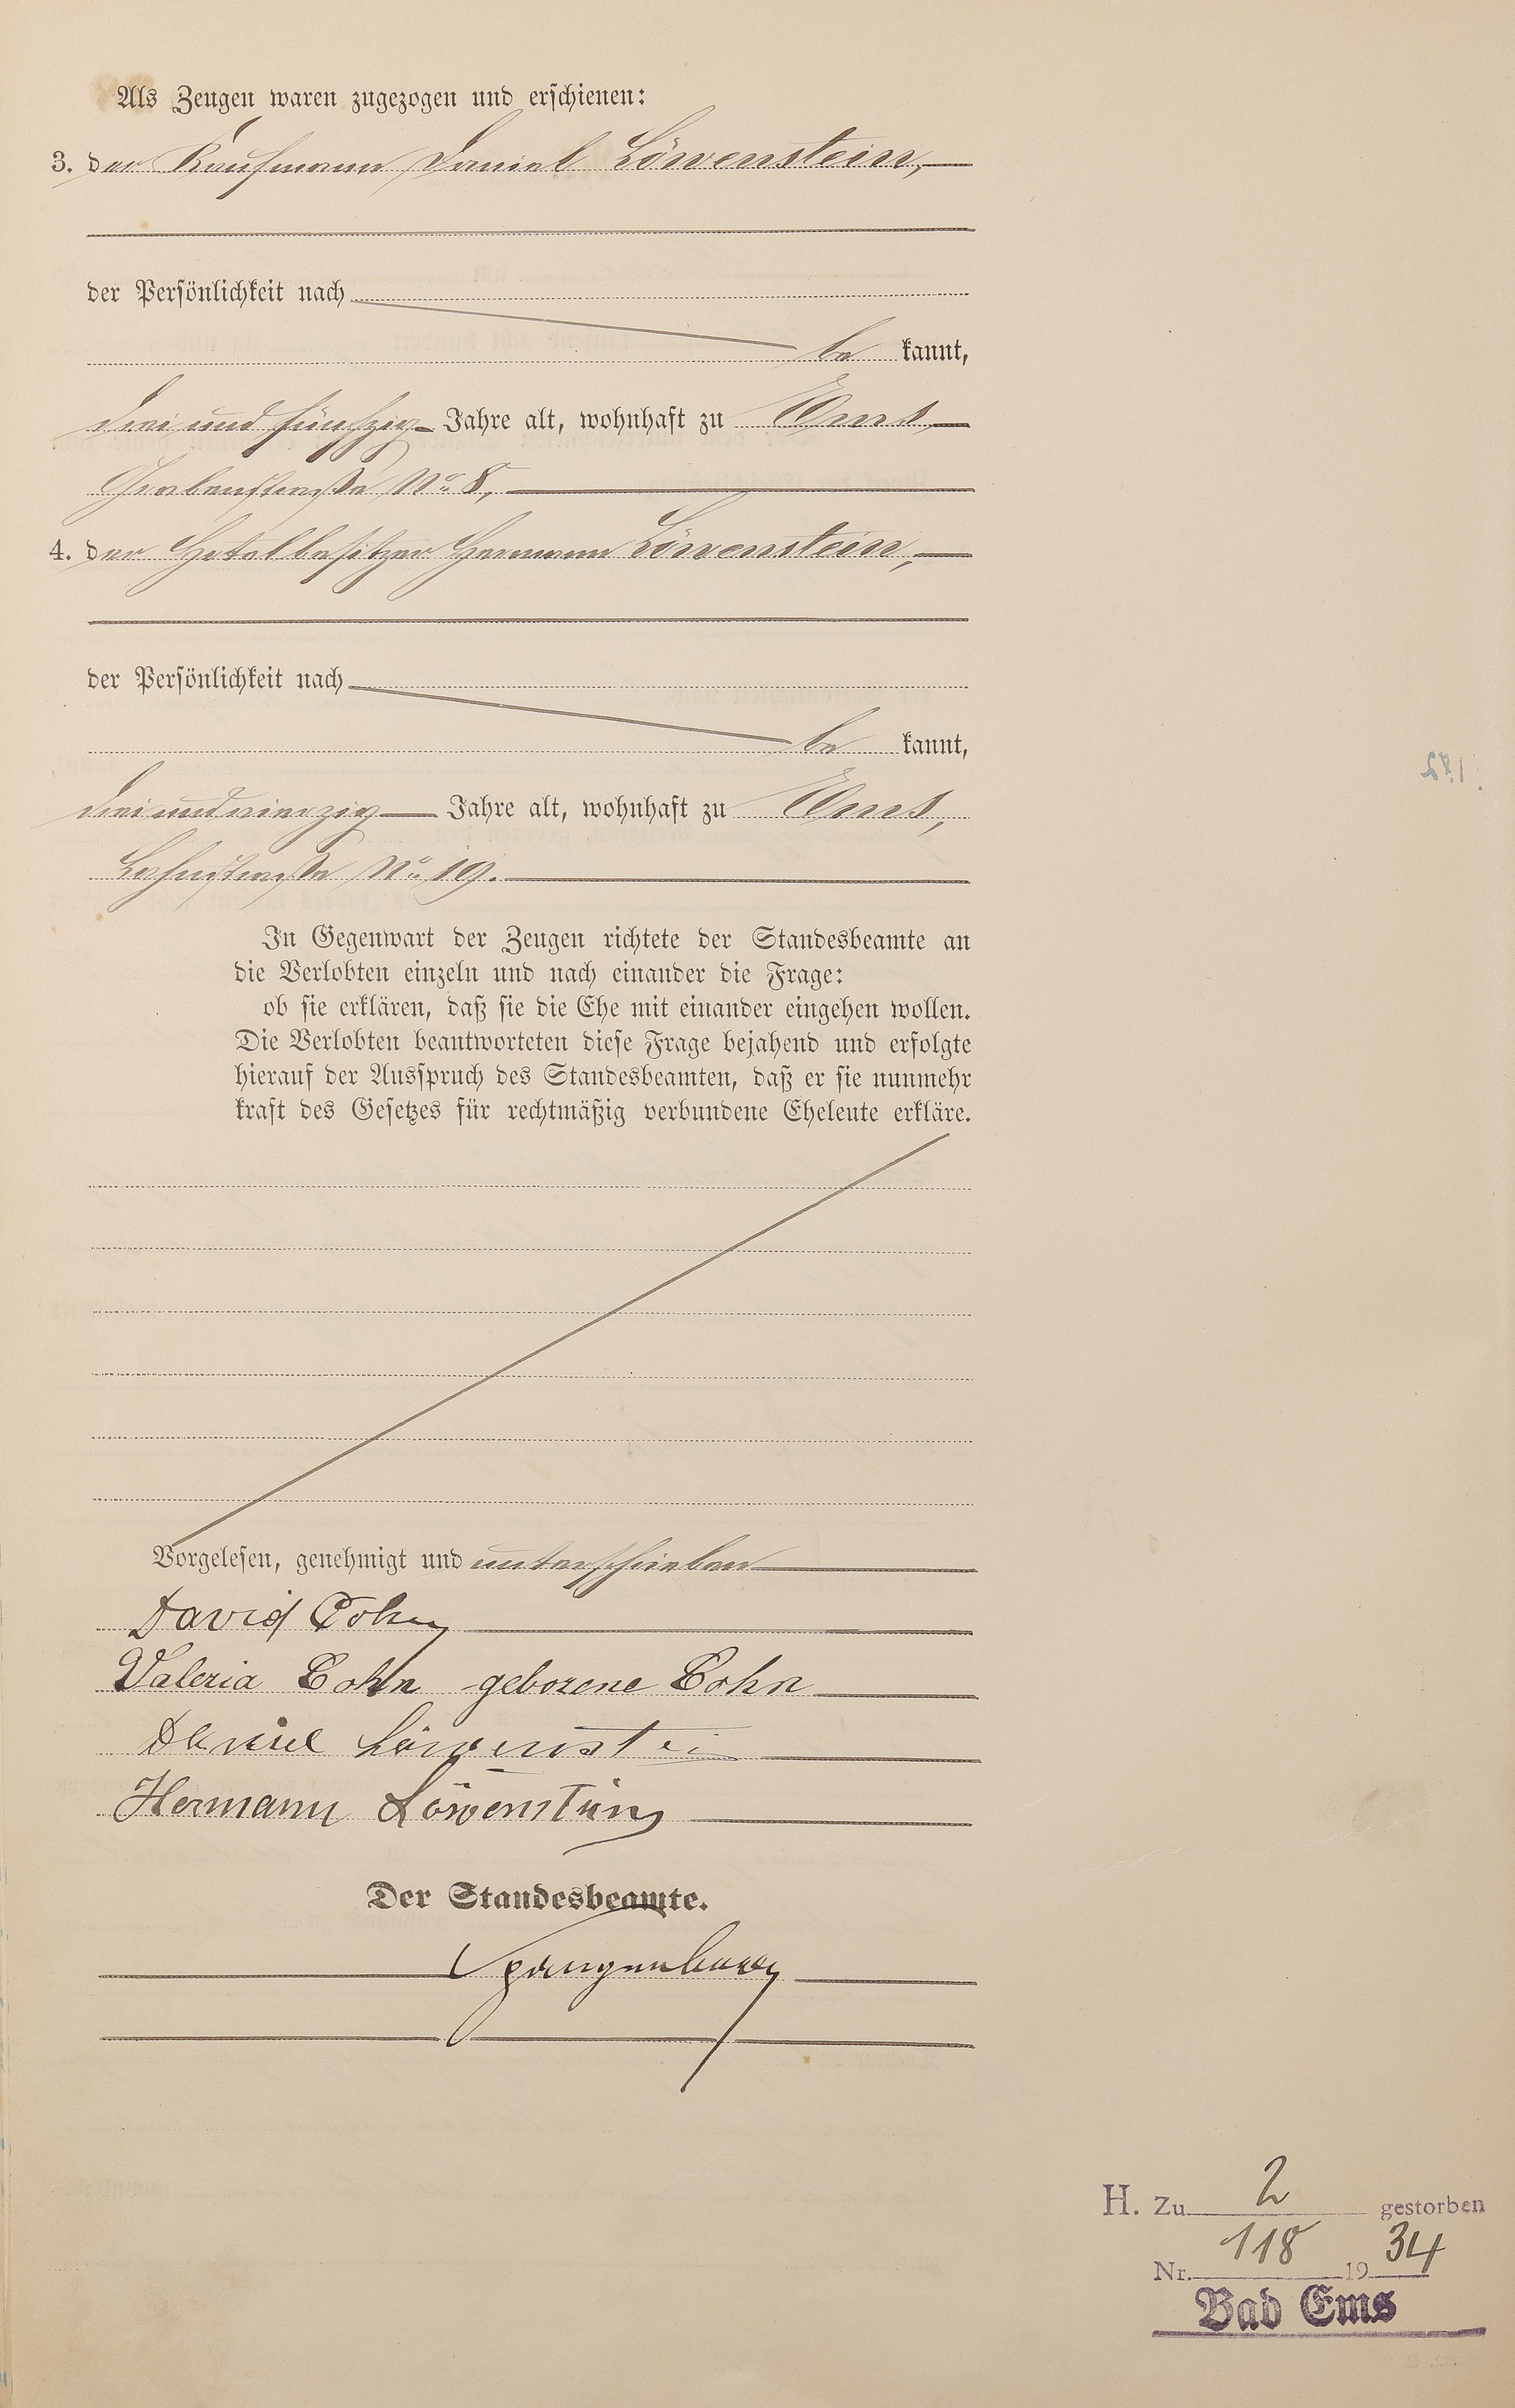 Als Zeugen waren zugezogen und erschienen:
3. der Kaufmann Daniel Löwenstein,
der Persönlichkeit nach
be kannt,
drei und fünfzig Jahre alt, wohnhaft zu Ems
Grabenstraße No 8,
4. der Hotelbesitzer Hermann Löwenstein,
der Persönlichkeit nach
be kannt,
dreiundvierzig Jahre alt, wohnhaft zu Ems,
Lahnstraße No 19.
In Gegenwart der Zeugen richtete der Standesbeamte an
die Verlobten einzeln und nach einander die Frage:
ob sie erklären, daß sie die Ehe mit einander eingehen wollen.
Die Verlobten beantworteten diese Frage bejahend und erfolgte
hierauf der Ausspruch des Standesbeamten, daß er sie nunmehr
kraft des Gesetzes für rechtmäßig verbundene Eheleute erkläre.
Vorgelesen, genehmigt und unterschrieben
David Cohn
Valeria Cohn geborene Cohn
Daniel Löwenstein
Hermann Löwenstein
Der Standesbeamte.
Spangenberg
H. Zu 2 gestorben
Nr. 118 1934
Bad Ems